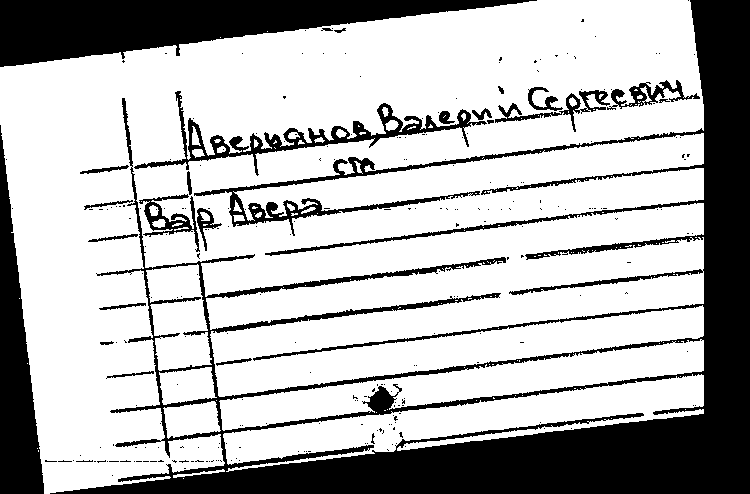 Аверьянов, Валерий Сергеевич
ста
Вар Авера